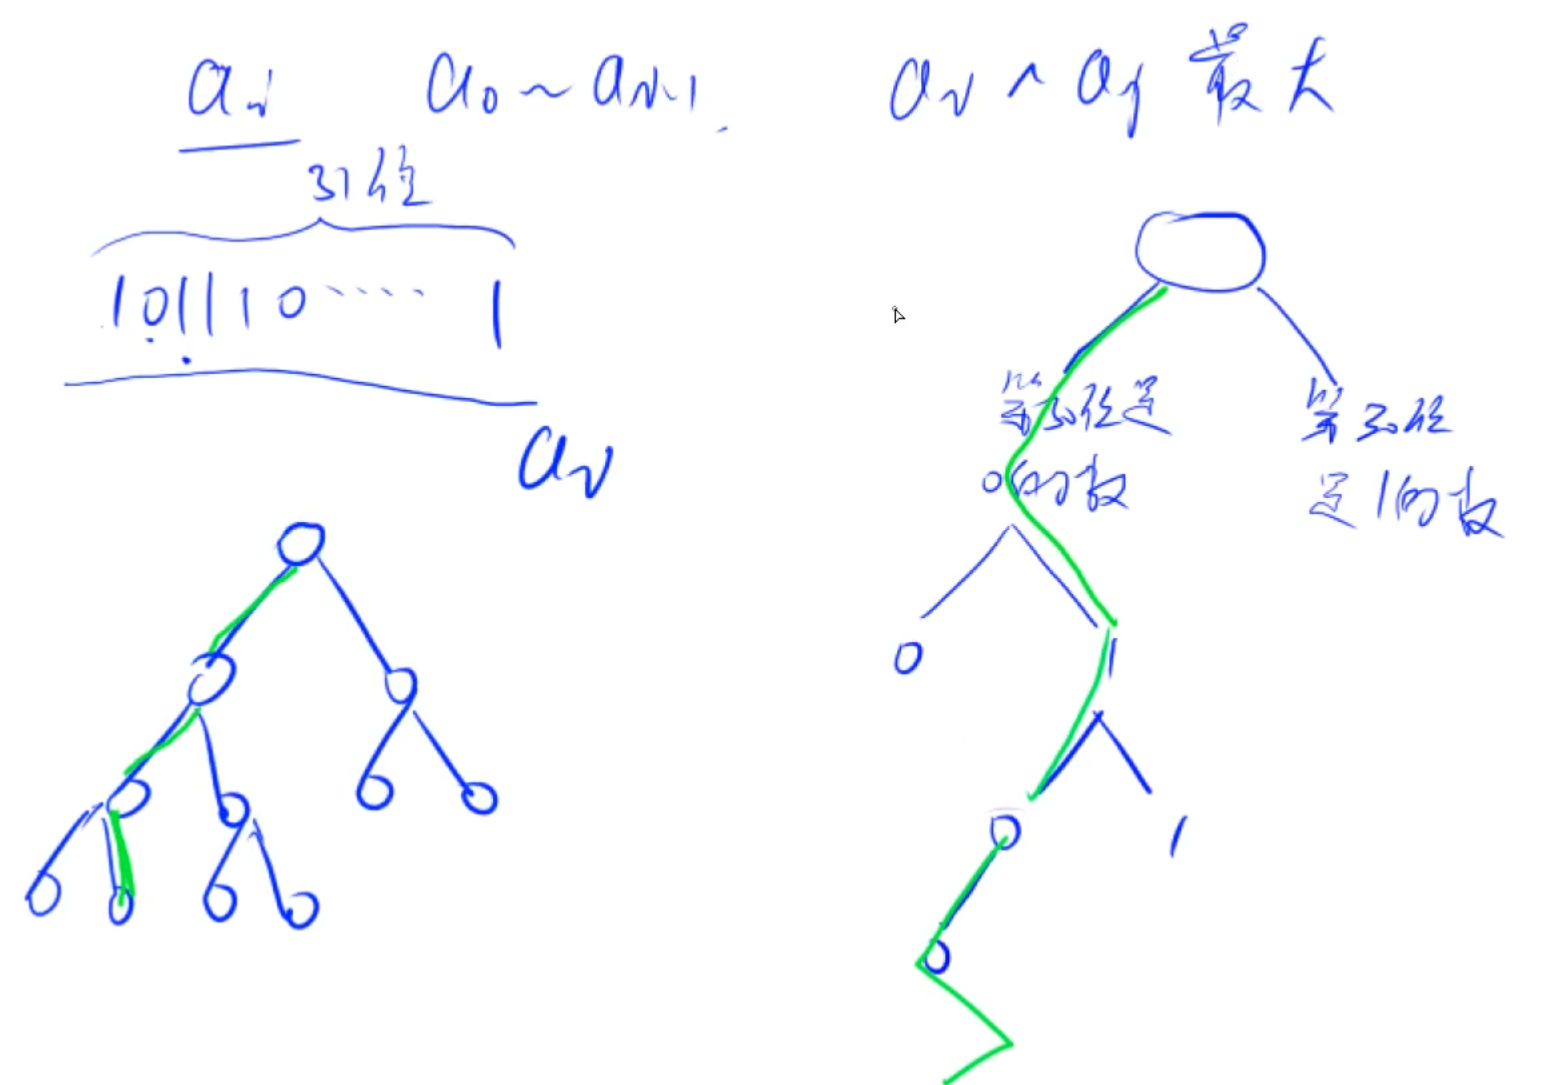 aᵢ a₀ ~ aᵢ₋₁
aᵢ ^ aⱼ 最大
31位
101110 ····· 1
aᵢ
第30位是
0的数
第30位
是1的数
0 1
0 1
0